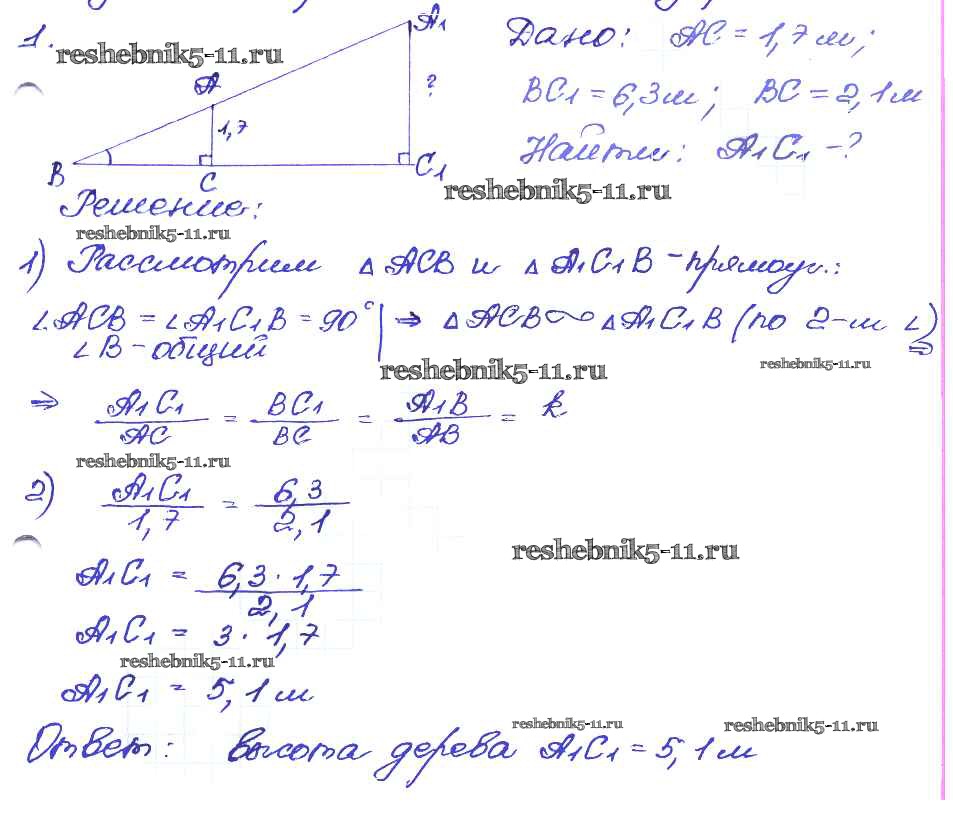 1.
reshebnik5-11.ru
A1
A
?
1,7
B
C
C1
Дано: AC = 1,7 м;
BC1 = 6,3 м; BC = 2,1 м
Найти: A1C1 - ?
reshebnik5-11.ru
Решение:
reshebnik5-11.ru
1) Рассмотрим Δ ACB и Δ A1C1B - прямоуг.:
∠ACB = ∠A1C1B = 90° | ⇒ Δ ACB ∾ Δ A1C1B (по 2-м ∠)
∠B - общий ⇒
reshebnik5-11.ru
reshebnik5-11.ru
⇒ A1C1/AC = BC1/BC = A1B/AB = k
reshebnik5-11.ru
2) A1C1/1,7 = 6,3/2,1
reshebnik5-11.ru
A1C1 = 6,3 · 1,7/2,1
A1C1 = 3 · 1,7
reshebnik5-11.ru
A1C1 = 5,1 м
reshebnik5-11.ru
reshebnik5-11.ru
Ответ: высота дерева A1C1 = 5,1 м